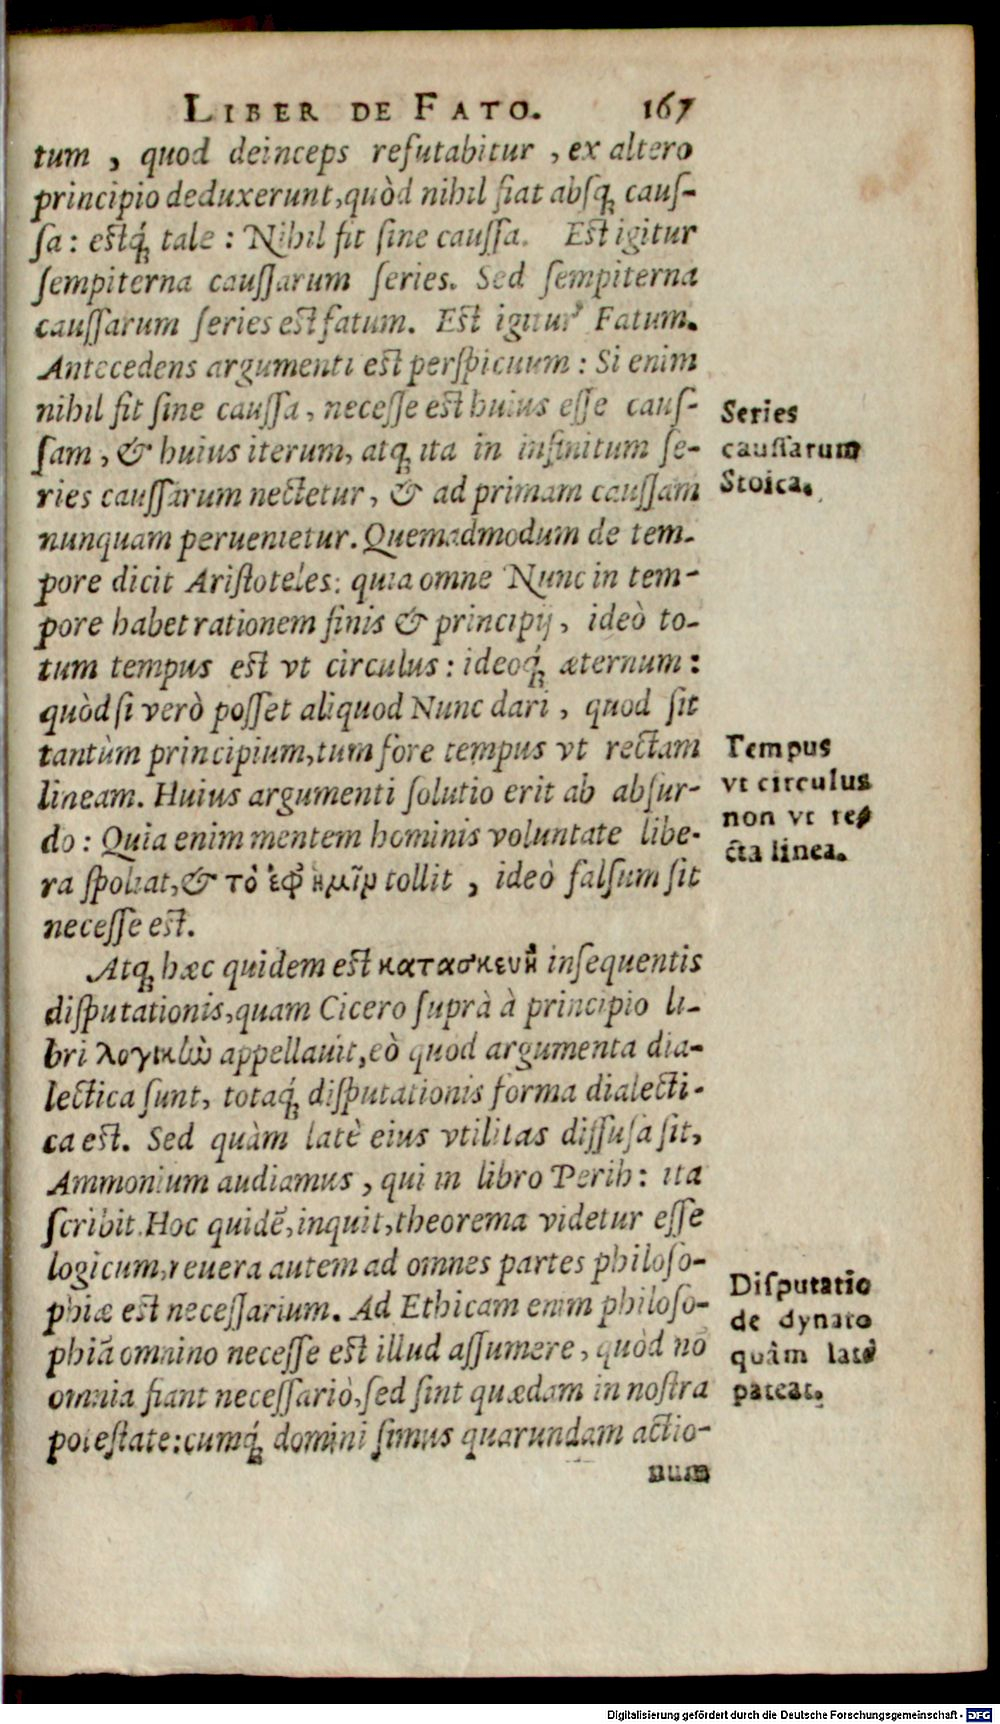 LIBER DE FATO. 167
tum, quod deinceps refutabitur, ex altero
principio deduxerunt, quòd nihil fiat absq; caus-
sa: estq́; tale: Nihil fit sine caussa. Est igitur
sempiterna caussarum series. Sed sempiterna
caussarum series est fatum. Est igitur Fatum.
Antecedens argumenti est perspicuum: Si enim
nihil fit sine caussa, necesse est huius esse caus-
sam, & huius iterum, atq; ita in infinitum se-
ries caussarum nectetur, & ad primam caussam
nunquam peruenietur. Quemadmodum de tem-
pore dicit Aristoteles: quia omne Nunc in tem-
pore habet rationem finis & principij, ideò to-
tum tempus est vt circulus: ideoq́; æternum:
quòd si verò posset aliquod Nunc dari, quod sit
tantùm principium, tum fore tempus vt rectam
lineam. Huius argumenti solutio erit ab absur-
do: Quia enim mentem hominis voluntate libe-
ra spoliat, & τὸ ἐφ' ἡμῖν tollit, ideò falsum sit
necesse est.
Atq; hæc quidem est κατασκευὴ insequentis
disputationis, quam Cicero suprà à principio li-
bri λογικὼ appellauit, eò quod argumenta dia-
lectica sunt, totaq́; disputationis forma dialecti-
ca est. Sed quàm latè eius vtilitas diffusa sit,
Ammonium audiamus, qui in libro Perih: ita
scribit. Hoc quidē, inquit, theorema videtur esse
logicum, reuera autem ad omnes partes philoso-
phiæ est necessarium. Ad Ethicam enim philoso-
phiā omnino necesse est illud assumere, quòd nō
omnia fiant necessariò, sed sint quædam in nostra
potestate: cumq́; domini simus quarundam actio-
num
Series
caussarum
Stoica.
Tempus
vt circulus
non vt re-
cta linea.
Disputatio
de dynato
quàm latè
pateat.
Digitalisierung gefördert durch die Deutsche Forschungsgemeinschaft - DFG